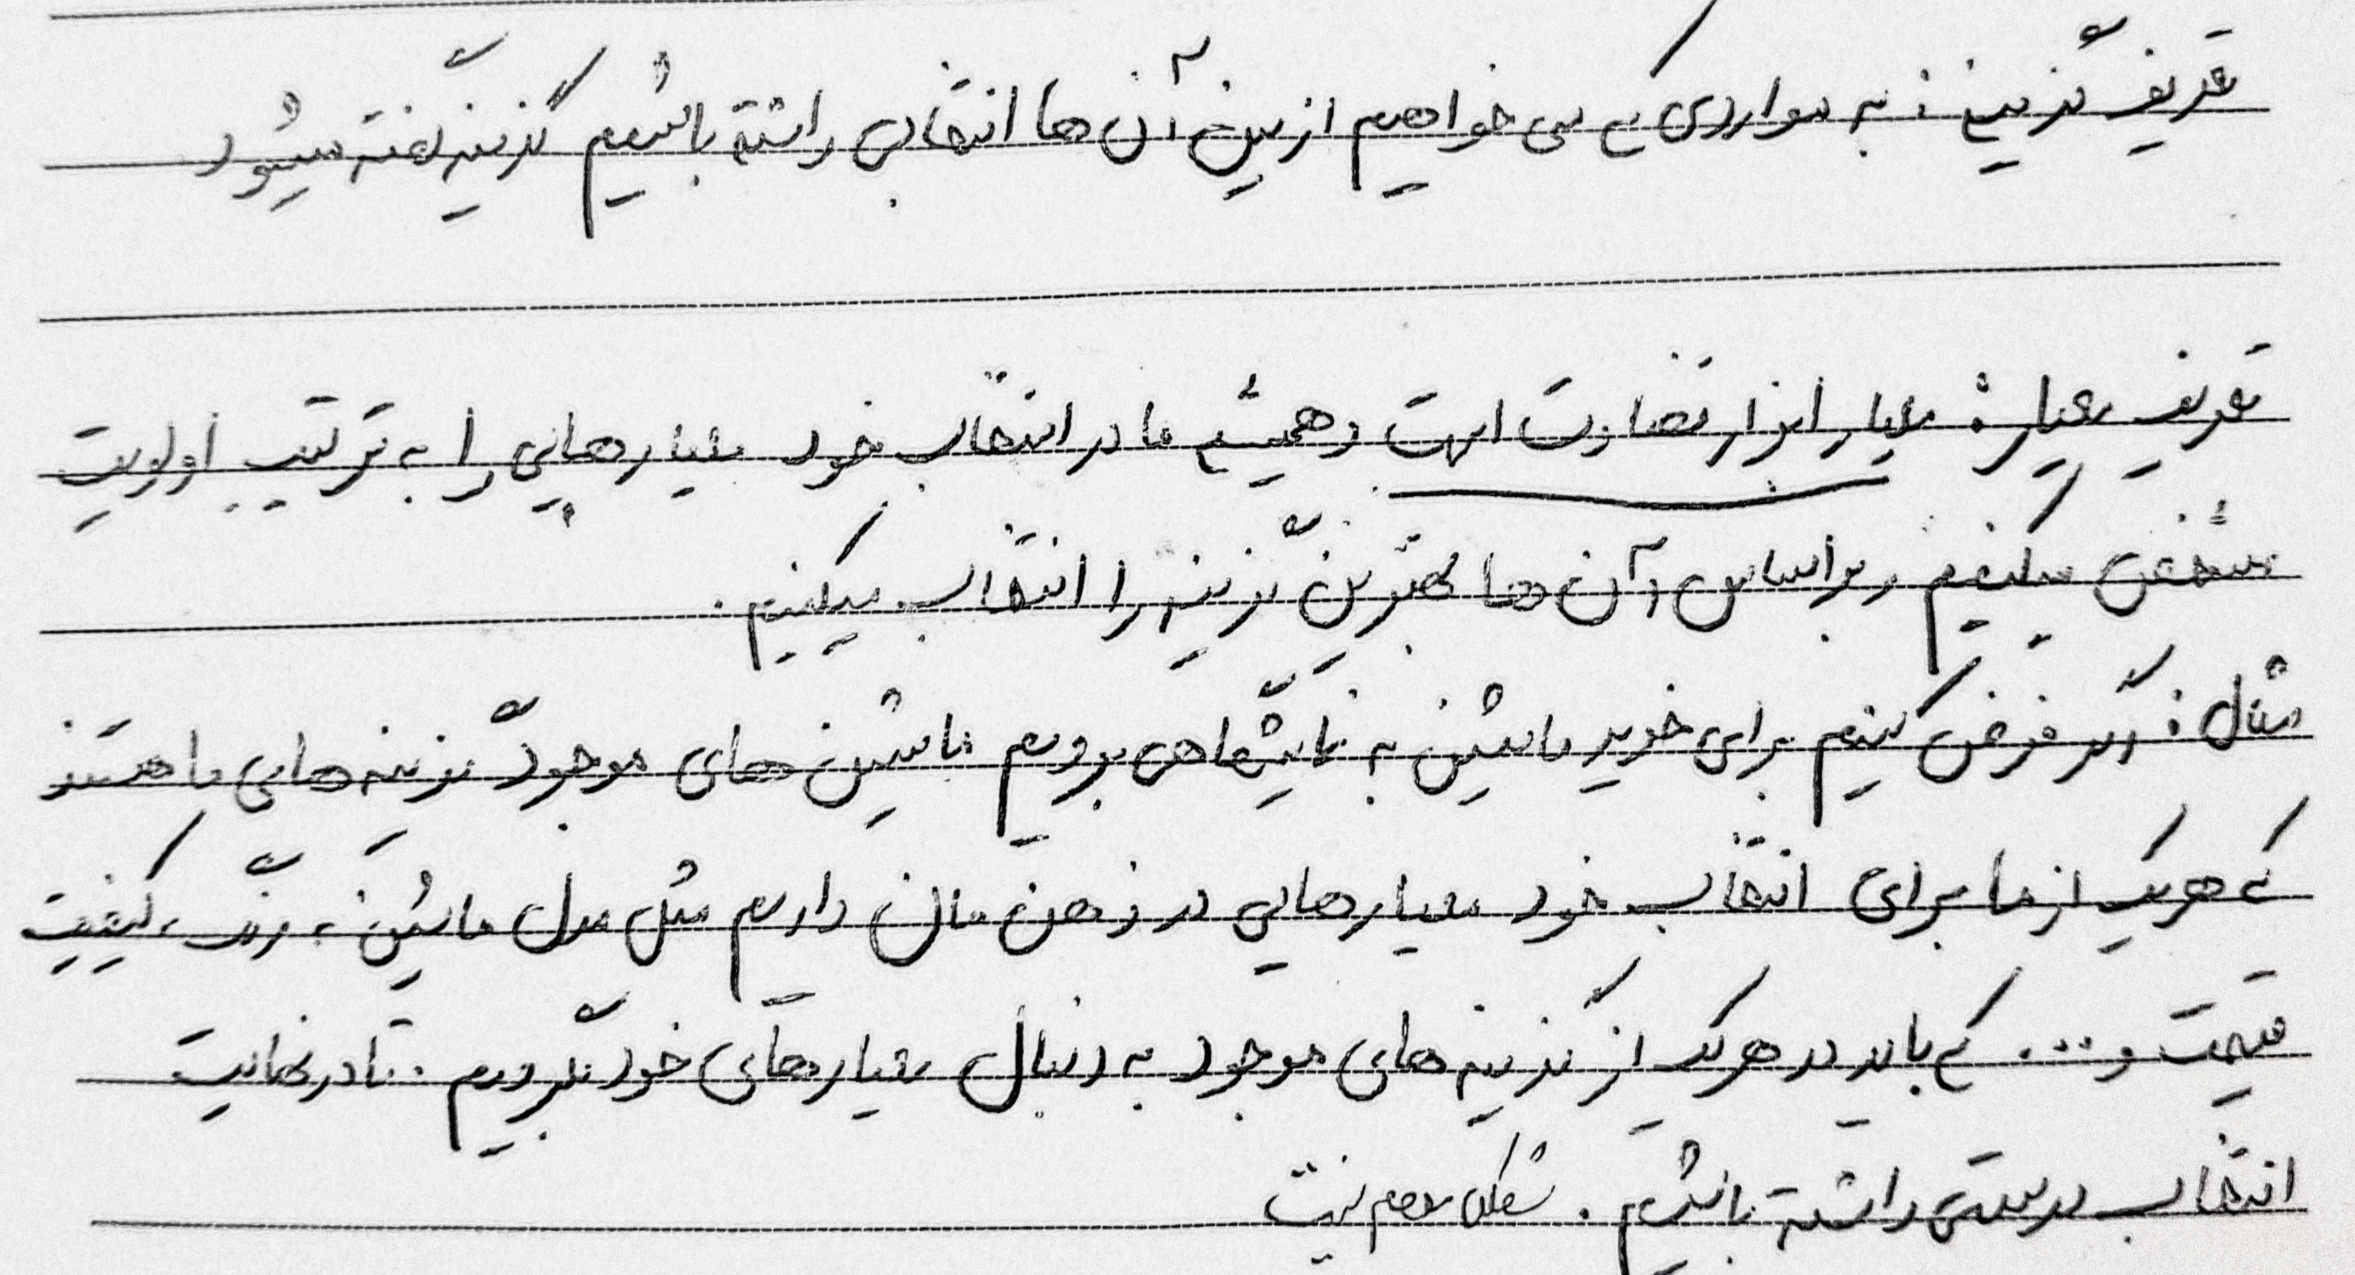 تعریف گزینه : به مواردی که می خواهیم از بین آن ها انتخابی داشته باشیم گزینه گفته میشود
تعریف معیار : معیار ابزار قضاوت است و همیشه ما در انتخاب خود معیارهایی را به ترتیب اولویت
مشخص میکنیم و براساس آن ها بهترین گزینه را انتخاب میکنیم .
مثال : اگر فرض کنیم برای خرید ماشین به نمایشگاهی برویم ماشین های موجود گزینه هایی ما هستند
که هریک از ما برای انتخاب خود معیارهایی در ذهن مان داریم مثل مدل ماشین ، رنگ ، کیفیت
قیمت و ... که باید در هریک از گزینه های موجود به دنبال معیارهای خود بگردیم . تا در نهایت
انتخاب درستی داشته باشیم . نیست